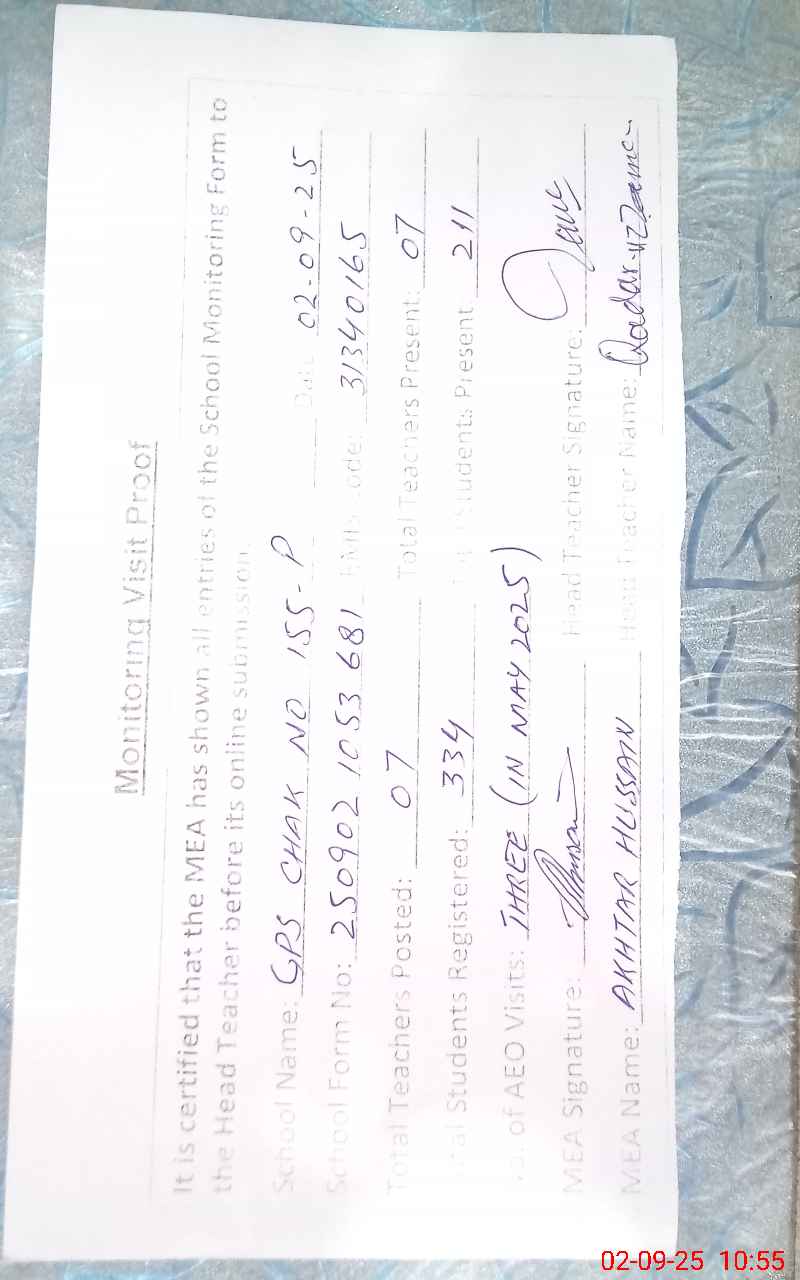 Monitoring Visit Proof
It is certified that the MEA has shown all entries of the School Monitoring Form to
the Head Teacher before its online submission.
School Name: GPS CHAK NO 155-P Date 02-09-25
School Form No: 250902 1053 681 EMIS Code: 31340165
Total Teachers Posted: 07 Total Teachers Present: 07
Total Students Registered: 334 Students Present 211
No. of AEO Visits: THREE (IN MAY 2025)
MEA Signature: Head Teacher Signature:
MEA Name: AKHTAR HUSSAIN Head Teacher Name:
02-09-25 10:55